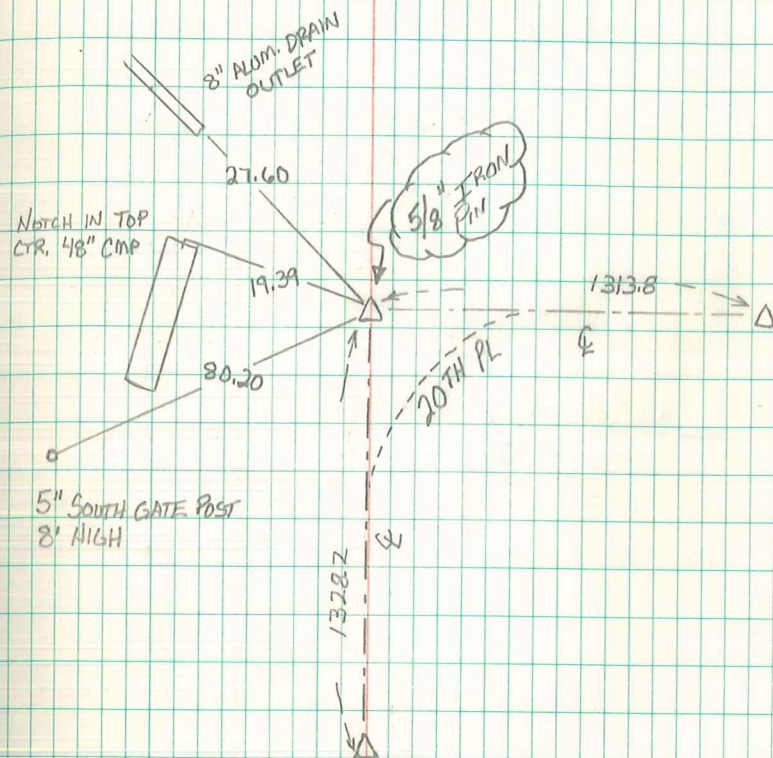 8" ALUM. DRAIN
OUTLET
27.60
5/8" IRON
PIN
NOTCH IN TOP
CTR. 48" CMP
19.39
1313.8
℄
80.20
20TH PL
5" SOUTH GATE POST
8' HIGH
℄
1328.2